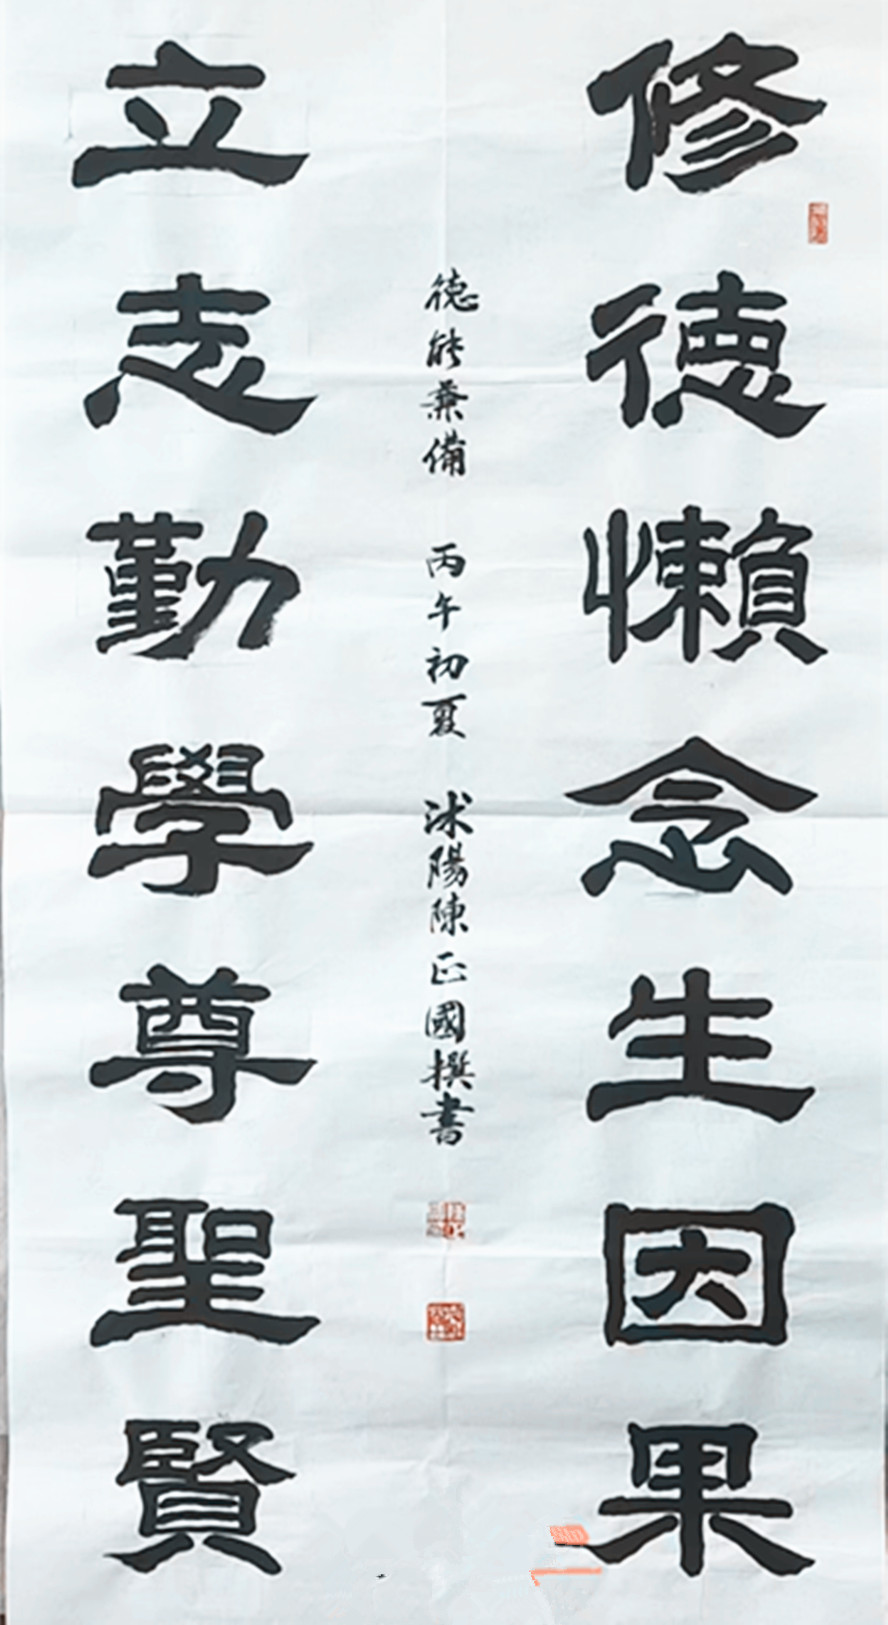 修德懒念生因果
德能兼備 丙午初夏 沭陽陳正國撰書
立志勤學尊聖賢